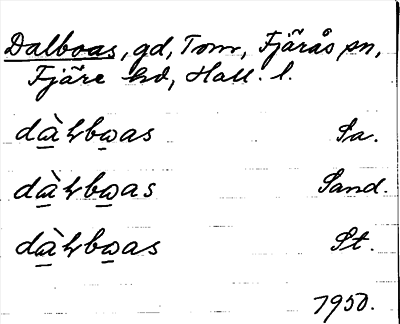 Dalboas, gd, Tom, Fjärås sn,
Fjäre hd, Hall. l.
dàɫbωas Sa.
dàɫbωas Sand.
dàɫbωas St.
1950.